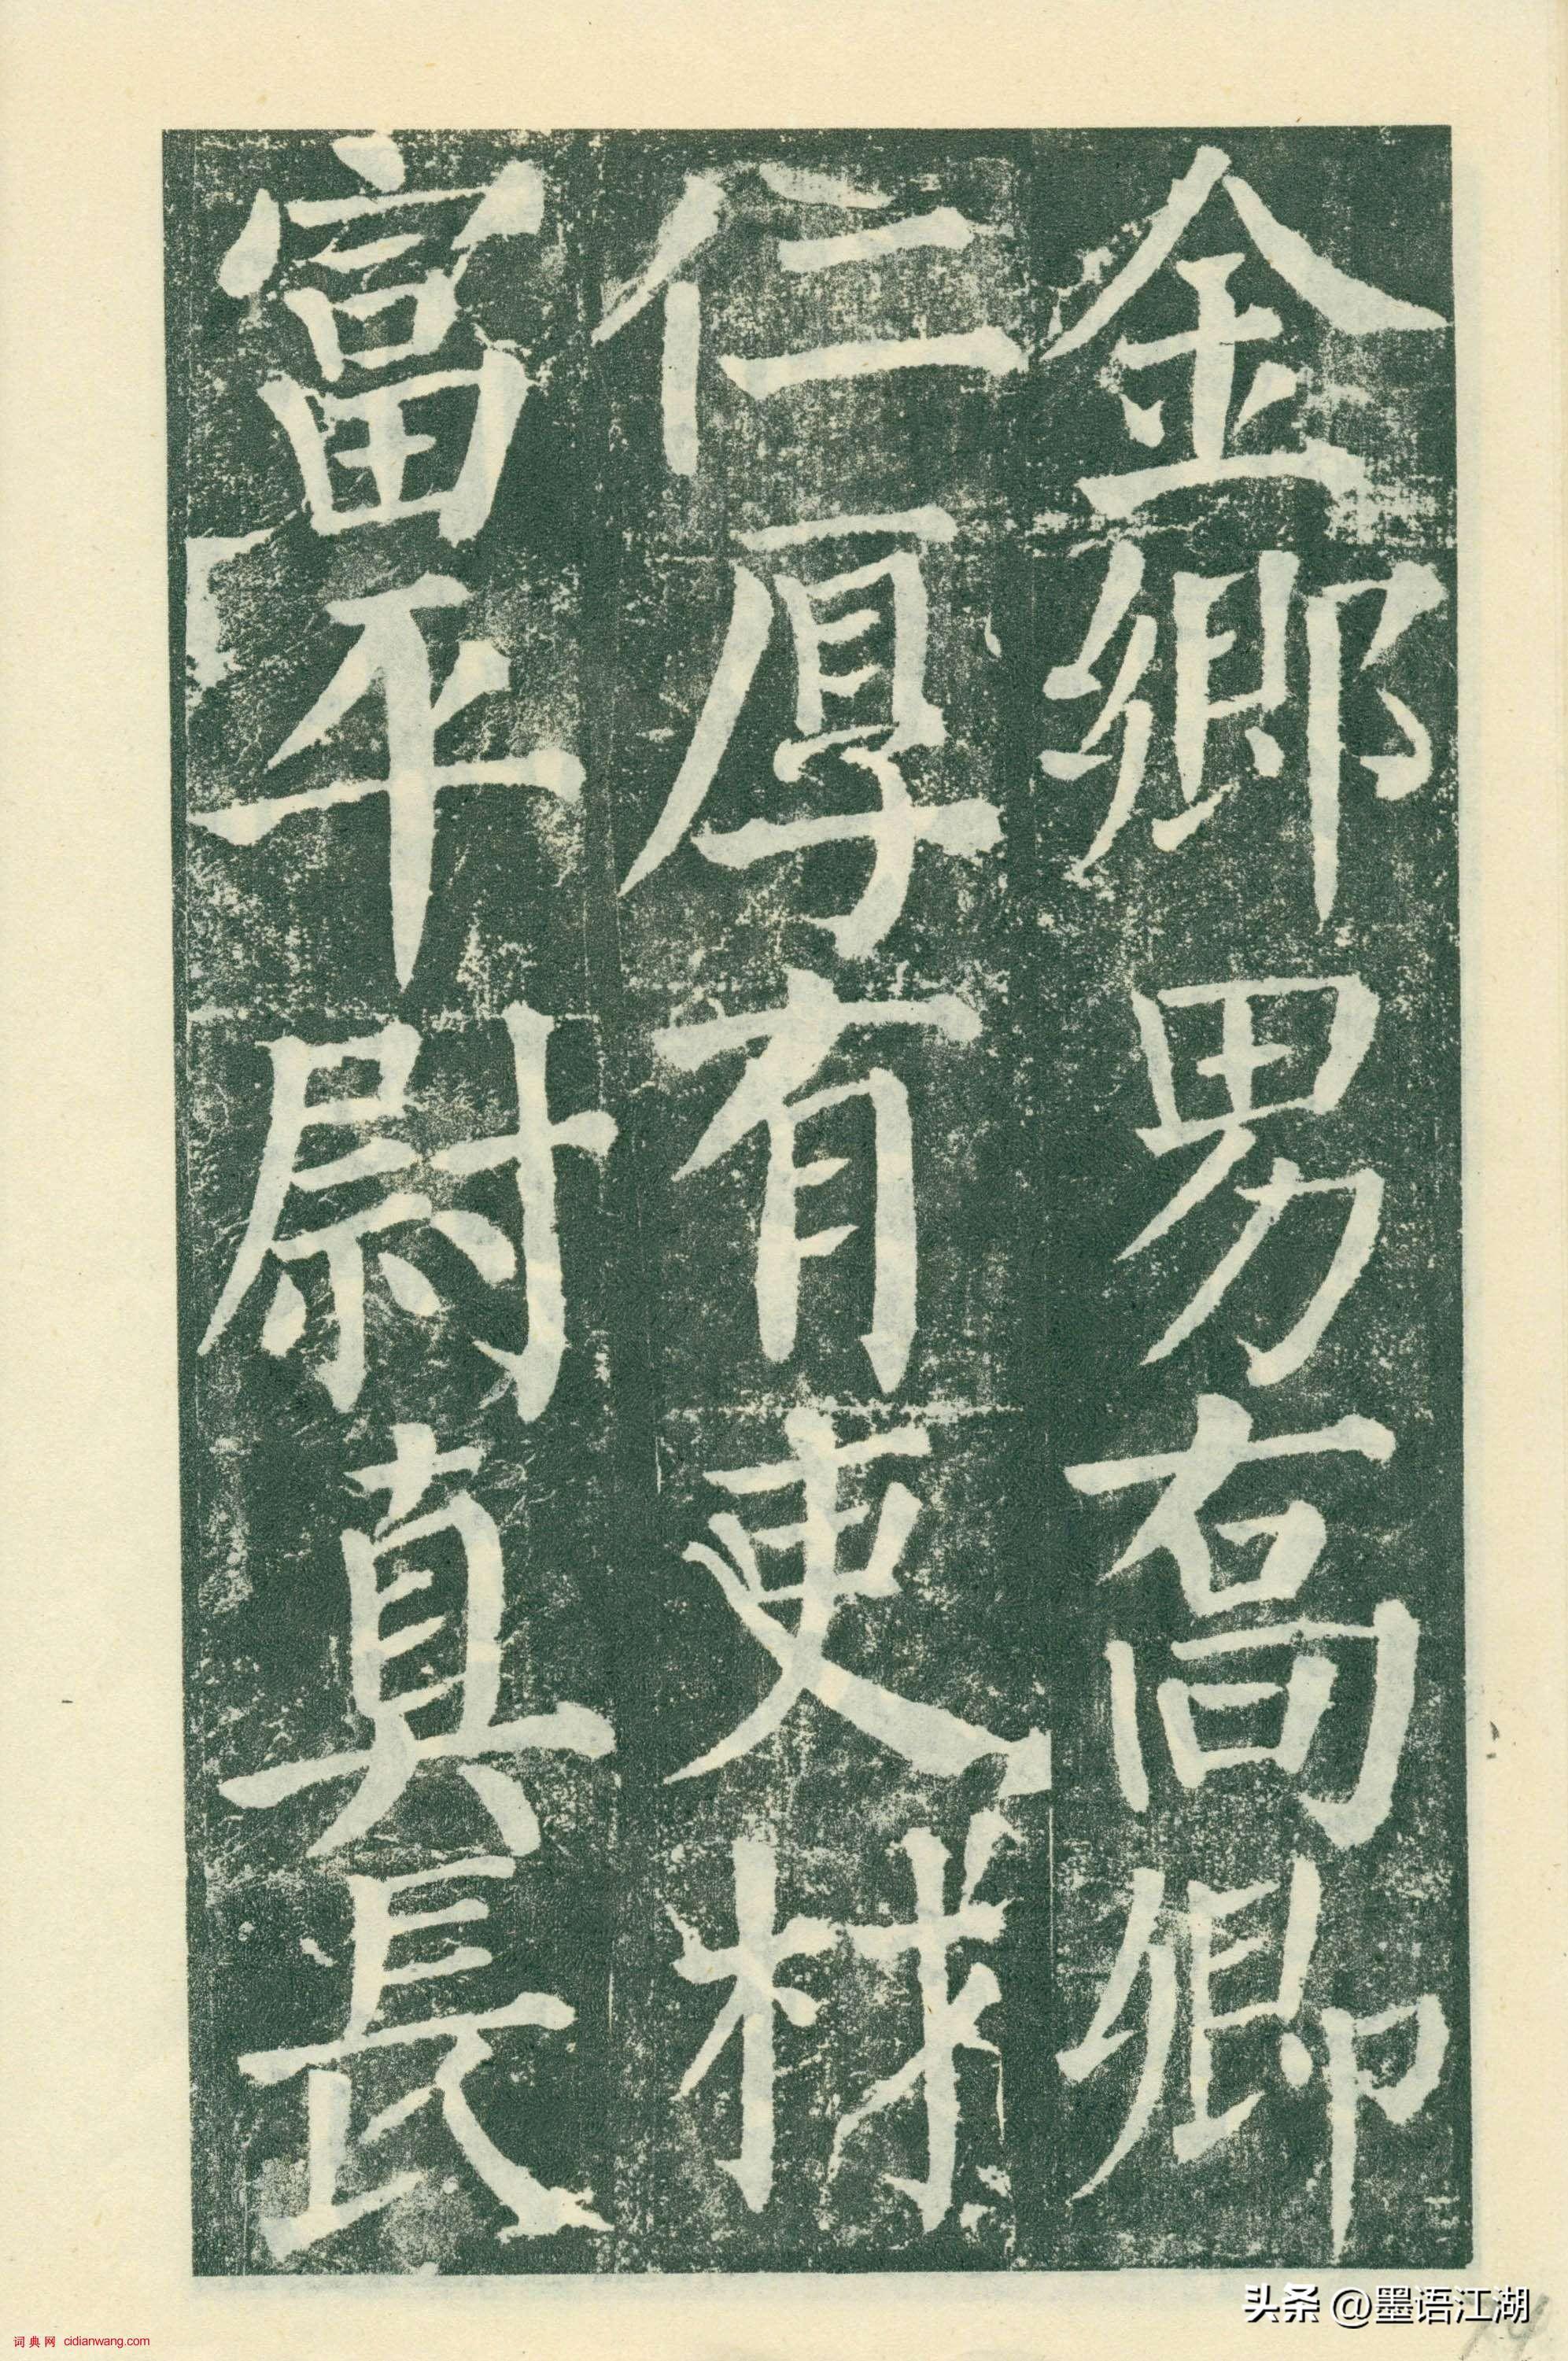 金鄉男高卿
仁厚有吏材
富平尉真長
头条 @墨语江湖
词典网 cidianwang.com